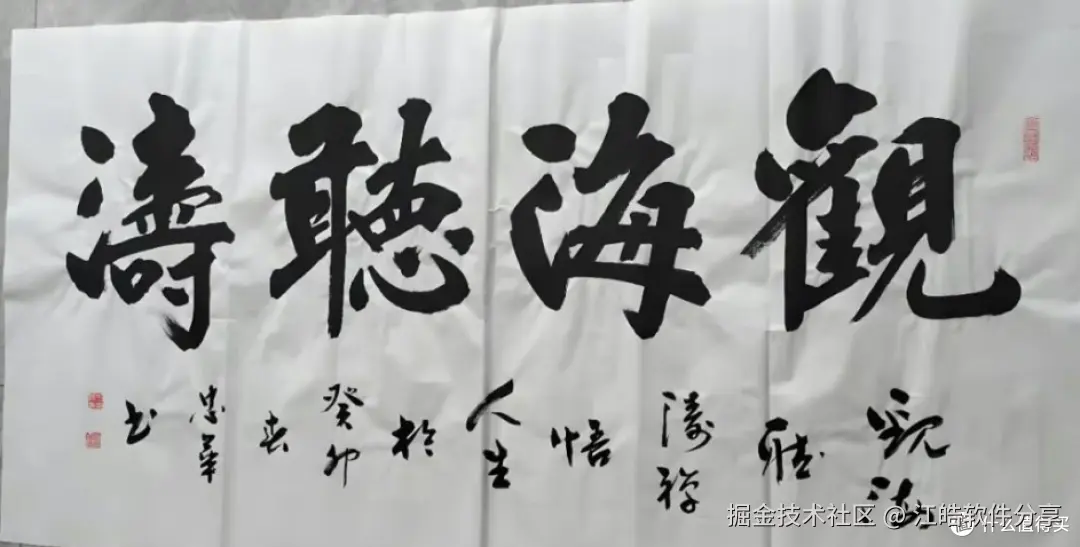 觀海聽濤
觀海
聽
濤禪
悟
人生
於
癸卯
春
忠華
书
掘金技术社区 @ 江皓软件分享
值 什么值得买